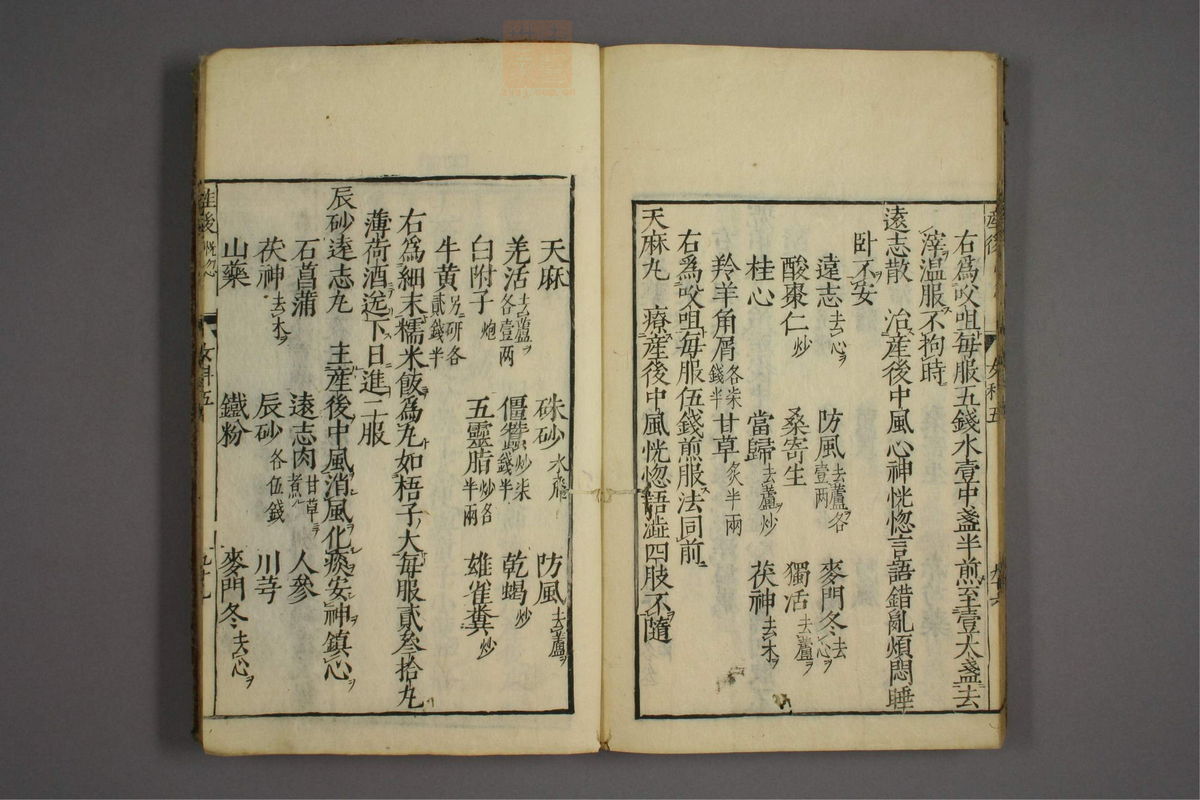 右爲㕮咀每服五錢水壹中盞半煎至壹大盞去
滓温服不拘時
遠志散 治産後中風心神恍惚言語錯亂煩悶睡
臥不安
遠志去心ヲ 防風去蘆ヲ各壹兩 麥門冬去心ヲ
酸棗仁炒 桑寄生 獨活去蘆ヲ
桂心 當歸去蘆ヲ炒 茯神去木ヲ
羚羊角屑各柒錢半 甘草炙半兩
右爲㕮咀每服伍錢煎服法同前
天麻丸 療産後中風恍惚語澁四肢不隨
天麻 硃砂水飛 防風去蘆ヲ
羌活去蘆ヲ各壹两 僵蠶炒柒錢半 乾蝎炒
白附子炮 五靈脂炒各半兩 雄雀糞炒
牛黄另研各貳錢半
右爲細末糯米飯爲丸如梧子大每服貳叁拾丸
薄荷酒送下日進二服
辰砂遠志丸 主産後中風消風化痰安神鎮心ヲ
石菖蒲 遠志肉甘草ニテ煮 人參
茯神去木ヲ 辰砂各伍錢 川芎
山藥 鐵粉 麥門冬去心ヲ
産後
女科五